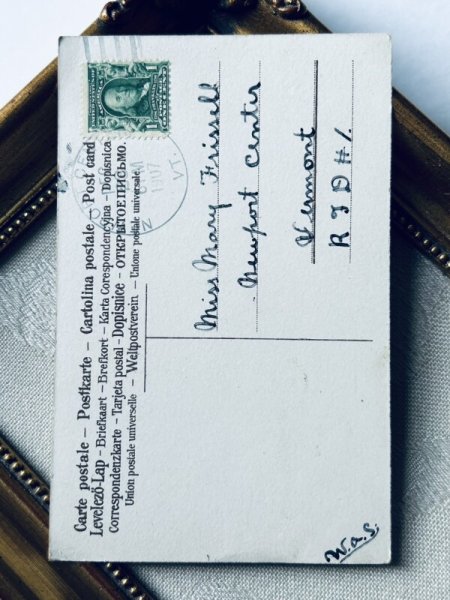 Carte postale — Postkarte — Cartolina postale — Post card
Levelező-Lap — Briefkaart — Brefkort — Karta Corespondencyjna — Dopisnica
Correspondenzkarte — Tarjeta postal — Dopisnice — ОТКРЫТОЕ ПИСЬМО.
Union postale universelle. — Weltpostverein. — Unione postale universale.
1907
VT.
Miss Mary Frissell
Newport Center
Vermont
R F D # 1.
W.a.S.